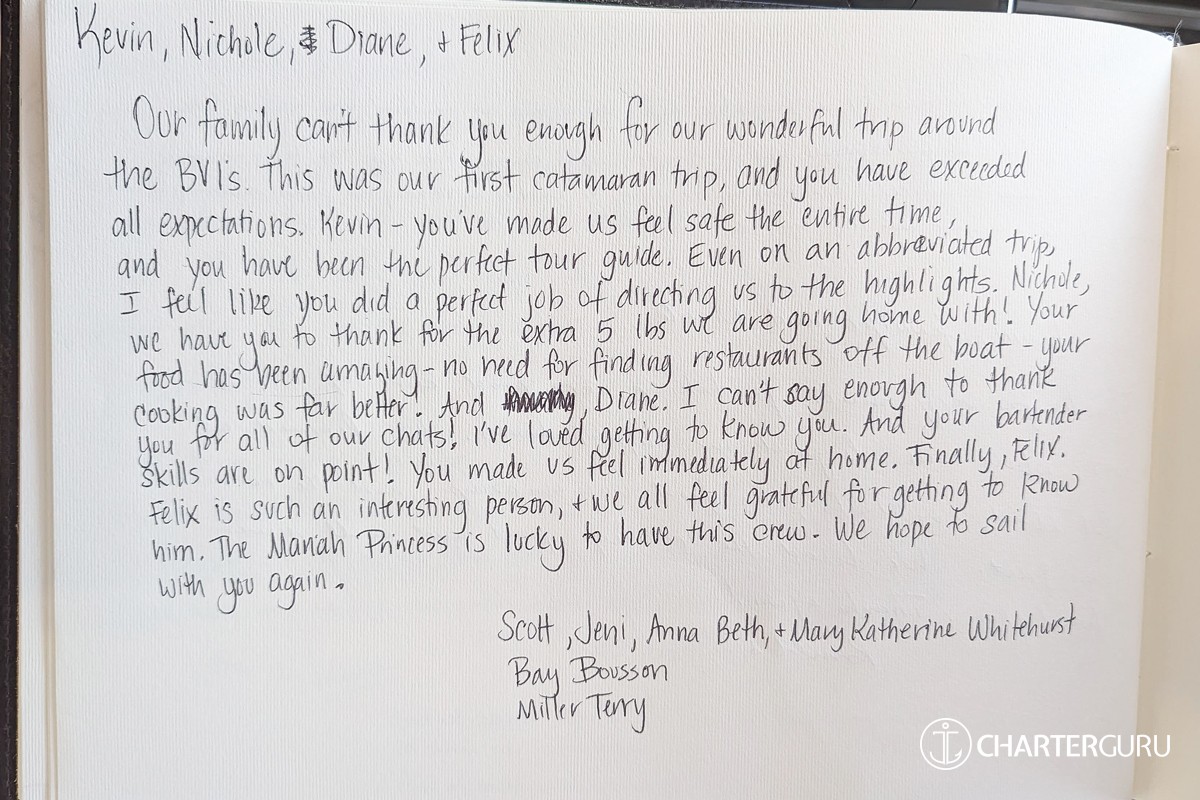 Kevin, Nichole, Diane, + Felix
Our family can't thank you enough for our wonderful trip around
the BVI's. This was our first catamaran trip, and you have exceeded
all expectations. Kevin - you've made us feel safe the entire time,
and you have been the perfect tour guide. Even on an abbreviated trip,
I feel like you did a perfect job of directing us to the highlights. Nichole,
we have you to thank for the extra 5 lbs we are going home with! Your
food has been amazing - no need for finding restaurants off the boat - your
cooking was far better! And , Diane. I can't say enough to thank
you for all of our chats! I've loved getting to know you. And your bartender
skills are on point! You made us feel immediately at home. Finally, Felix.
Felix is such an interesting person, + we all feel grateful for getting to know
him. The Mariah Princess is lucky to have this crew. We hope to sail
with you again.
Scott, Jeni, Anna Beth, + Mary Katherine Whitehurst
Bay Bousson
Miller Terry
CHARTERGURU